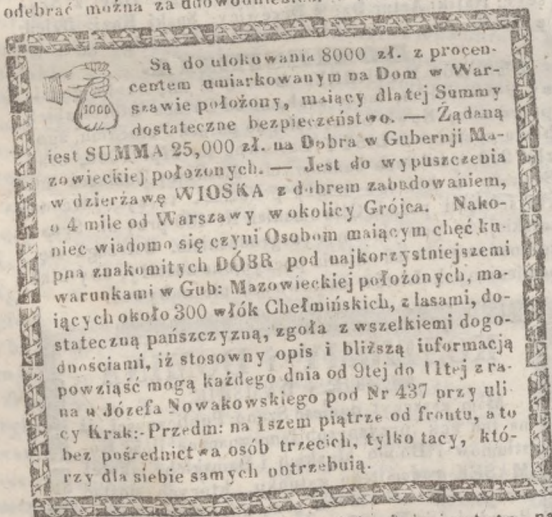 odebrać można za udowodnieniem
Są do ulokowania 8000 zł. z procen-
centem umiarkowanym na Dom w War-
szawie położony, maiący dla tej Summy
1000
dostateczne bezpieczeństwo. — Żądaną
iest SUMMA 25,000 zł. na Dobra w Gubernji Ma-
zowieckiej położonych. — Jest do wypuszczenia
w dzierżawę WIOSKA z dobrem zabudowaniem,
o 4 mile od Warszawy w okolicy Grójca. Nako-
niec wiadomo się czyni Osobom maiącym chęć ku-
pna znakomitych DÓBR pod najkorzystniejszemi
warunkami w Gub: Mazowieckiej położonych, ma-
iących około 300 włók Chełmińskich, z lasami, do-
stateczną pańszczyzną, zgoła z wszelkiemi dogo-
dnościami, iż stosowny opis i bliższą informacją
powziąść mogą każdego dnia od 9tej do 11tej z ra-
na u Józefa Nowakowskiego pod Nr 437 przy uli
cy Krak:-Przedm: na 1szem piątrze od frontu, a to
bez pośrednictwa osób trzecich, tylko tacy, któ-
rzy dla siebie samych potrzebuią.